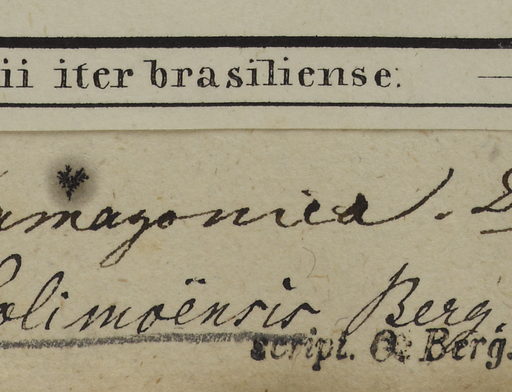 ii iter brasiliense.
amazonica. D
Solimoënsis Berg
script. O. Berg.